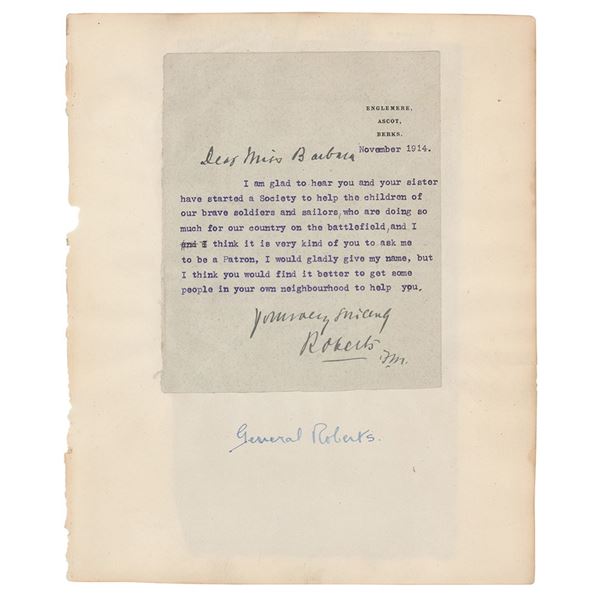 ENGLEMERE,
ASCOT,
BERKS.
November 1914.
Dear Miss Barbara
I am glad to hear you and your sister
have started a Society to help the children of
our brave soldiers and sailors, who are doing so
much for our country on the battlefield, and I
and I think it is very kind of you to ask me
to be a Patron, I would gladly give my name, but
I think you would find it better to get some
people in your own neighbourhood to help you.
Yours very sincerely
Roberts
F.M.
General Roberts.